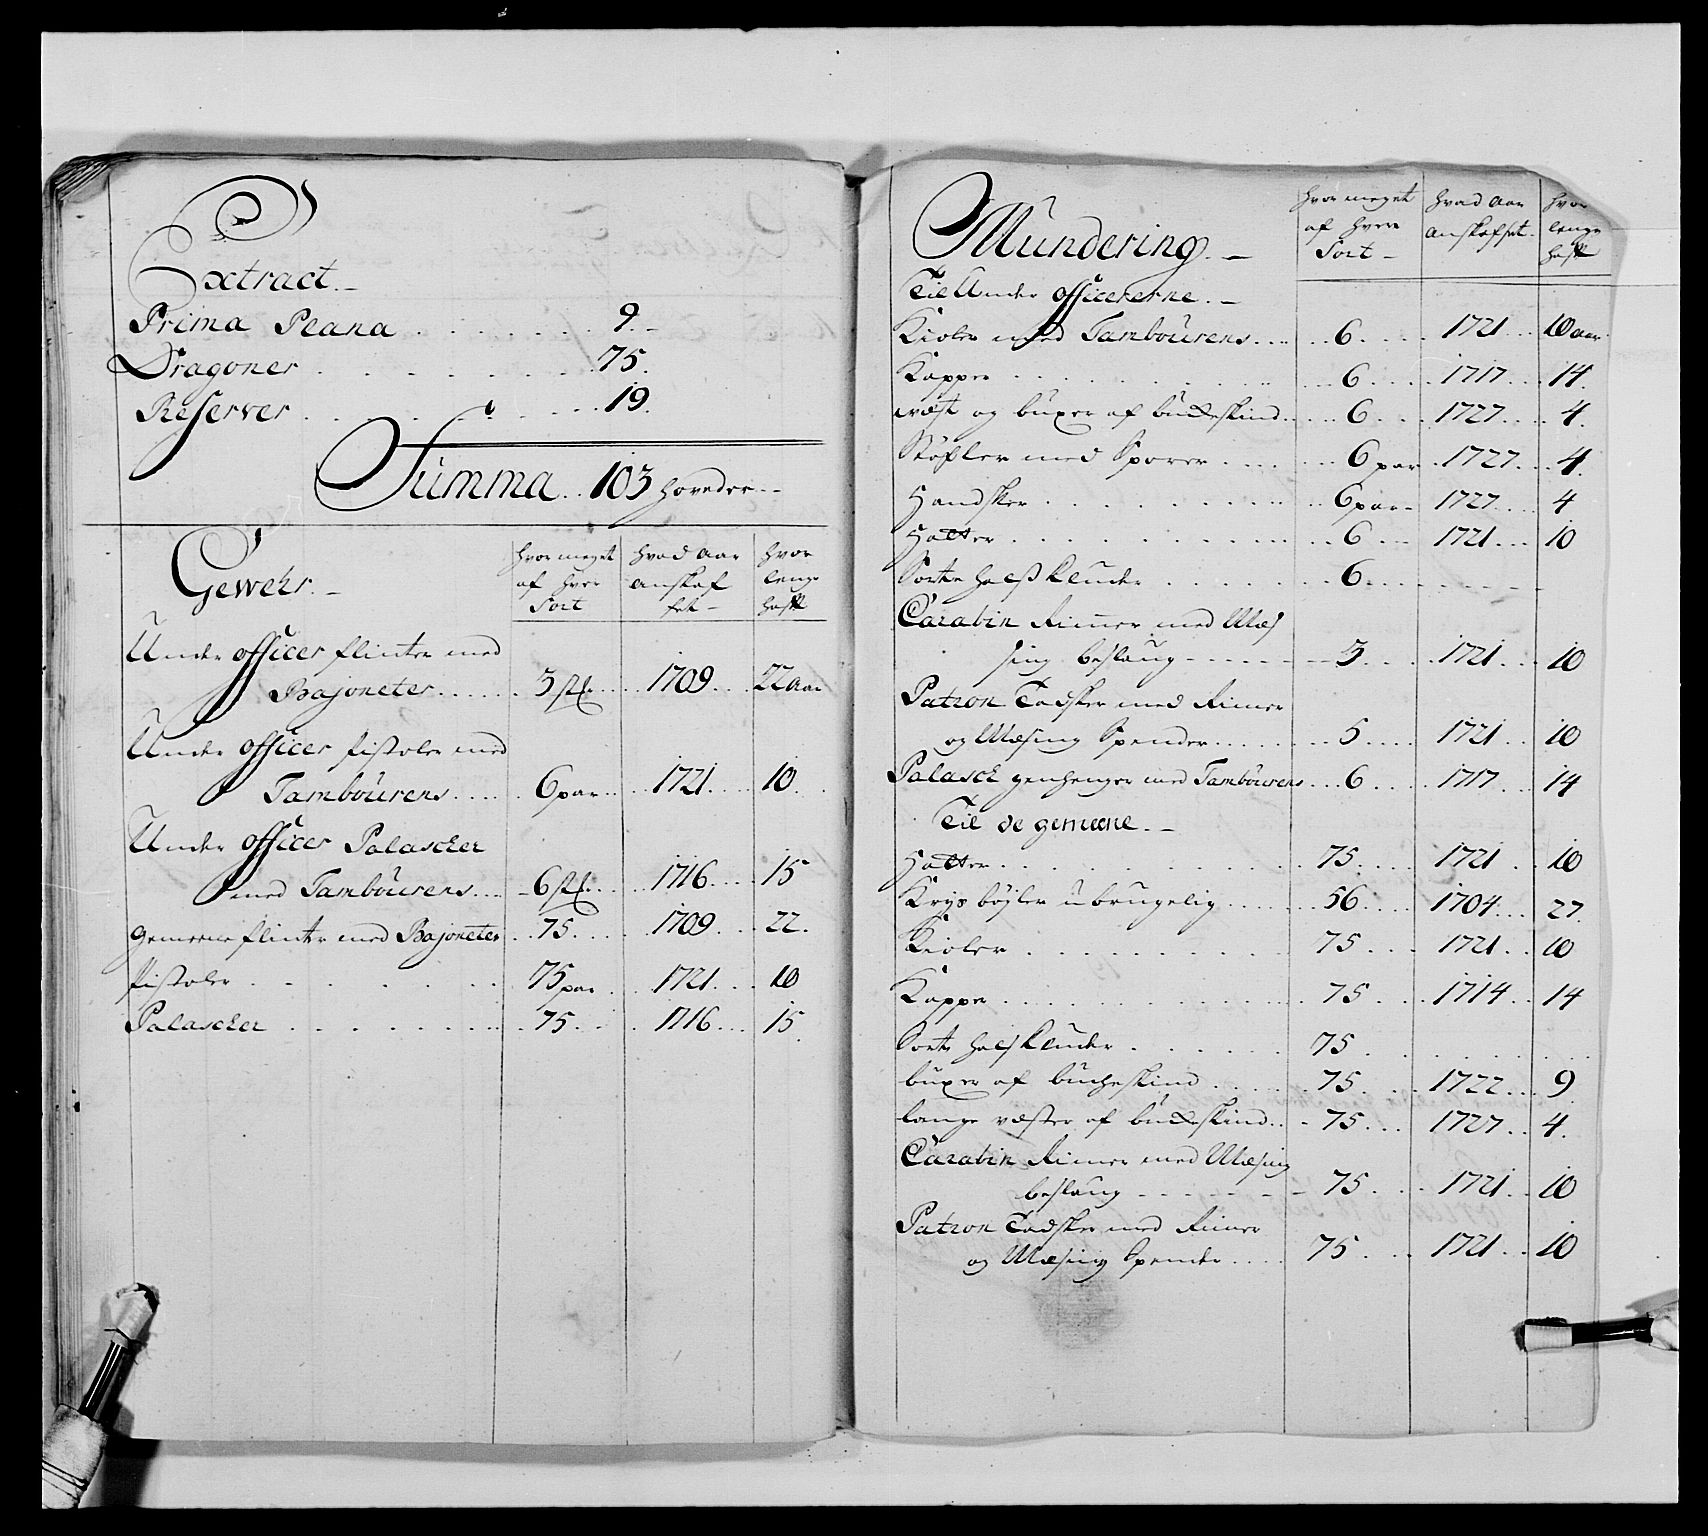 Extract.
Prima Plana . . . . . . . 9.
Dragoner . . . . . . . . 75.
Reserver . . . . . . . . 19.
Summa .. 103 hoveder.
Gewehr.
hvor meget af hver Sort
hvad aar anskaffet
hvor lenge hafft
Under officer flinter med
Bajoneter . . . . . 5 stk . . . 1709 . . . 22 aar
Under officer pistoler med
Tambourens . . . . . 6 par . . . 1721 . . . 10
Under officer Palascher
med Tambourens . . . 6 stk . . . 1716 . . . 15
gemeene flinter med Bajoneter . . 75 . . . 1709 . . . 22.
Pistoler . . . . . . . 75 par . . 1721 . . . 10
Palascher . . . . . . . 75 . . . 1716 . . . 15
Mundering.
hvor meget af hver Sort
hvad aar anskaffet
hvor lenge hafft
Til Under officererne.
Kioler med Tambourens . . . . 6 . . . . 1721 . . . 10 aar
Kapper . . . . . . . . . 6 . . . . 1717 . . . 14.
væst og buxer af bukkeskind . . . 6 . . . 1727 . . . 4.
Støfler med Sporer . . . . . . 6 par . . 1727 . . . 4.
Handsker . . . . . . . . 6 par . . 1727 . . . 4
Hatter . . . . . . . . . 6 . . . 1721 . . . 10
Sorte halsß Kluder . . . . . . 6 . . . .
Carabin Rimer med Mæs
sing beslaug . . . . . . 5 . . . . 1721 . . . 10
Patron Tadsker med Rimer
og Mæsing Spender . . . . . . 5 . . . . 1721 . . . 10
Palasck gehenger med Tambourens . . . 6 . . . . 1717 . . . 14
Til de gemeene.
Hatter . . . . . . . . . 75 . . . . 1721 . . 10
Kryds bøyler ubrugelig . . . . . . 56 . . . . 1704 . . . 27.
Kioler . . . . . . . . . 75 . . . . 1721 . . 10
Kapper . . . . . . . . . 75 . . . . 1714 . . 14
Sorte hals Kluder . . . . . . 75 . . . .
buxer af buckeskind . . . . . 75 . . . . 1722 . . . 9.
lange væster af bukkeskind . . . 75 . . . 1727 . . 4.
Carabin Rimer med Mæsing
beslaug . . . . . . . 75 . . . 1721 . . 10
Patron Tadsker med Rimer
og Mæsing Spender . . . . 75 . . . . 1721 . . 10